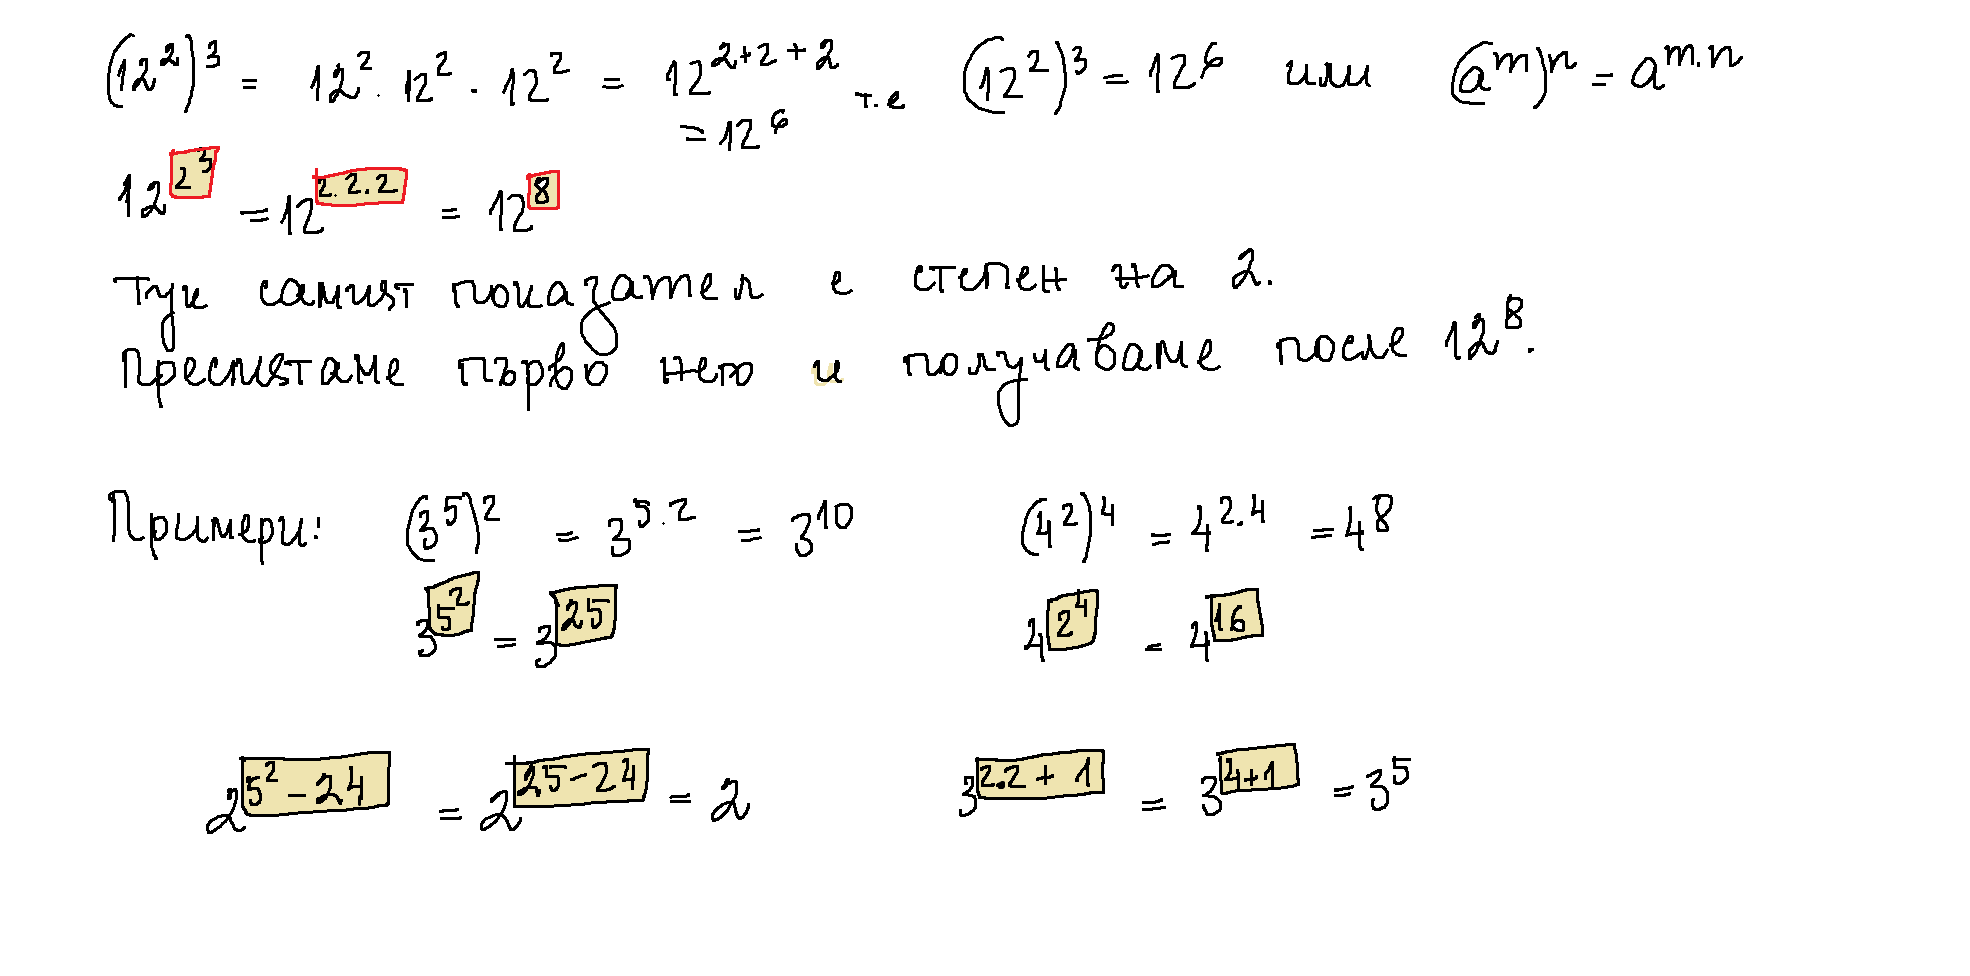 (12²)³ = 12² . 12² . 12² = 12²⁺²⁺² т.е (12²)³ = 12⁶ или (aᵐ)ⁿ = a^(m.n)
= 12⁶
12^(2³) = 12^(2.2.2) = 12⁸
Тук самият показател е степен на 2.
Пресмятаме първо него и получаваме после 12⁸.
Примери: (3⁵)² = 3^(5.2) = 3¹⁰ (4²)⁴ = 4^(2.4) = 4⁸
3^(5²) = 3²⁵ 4^(2⁴) = 4¹⁶
2^(5²-24) = 2^(25-24) = 2 3^(2.2+1) = 3^(4+1) = 3⁵